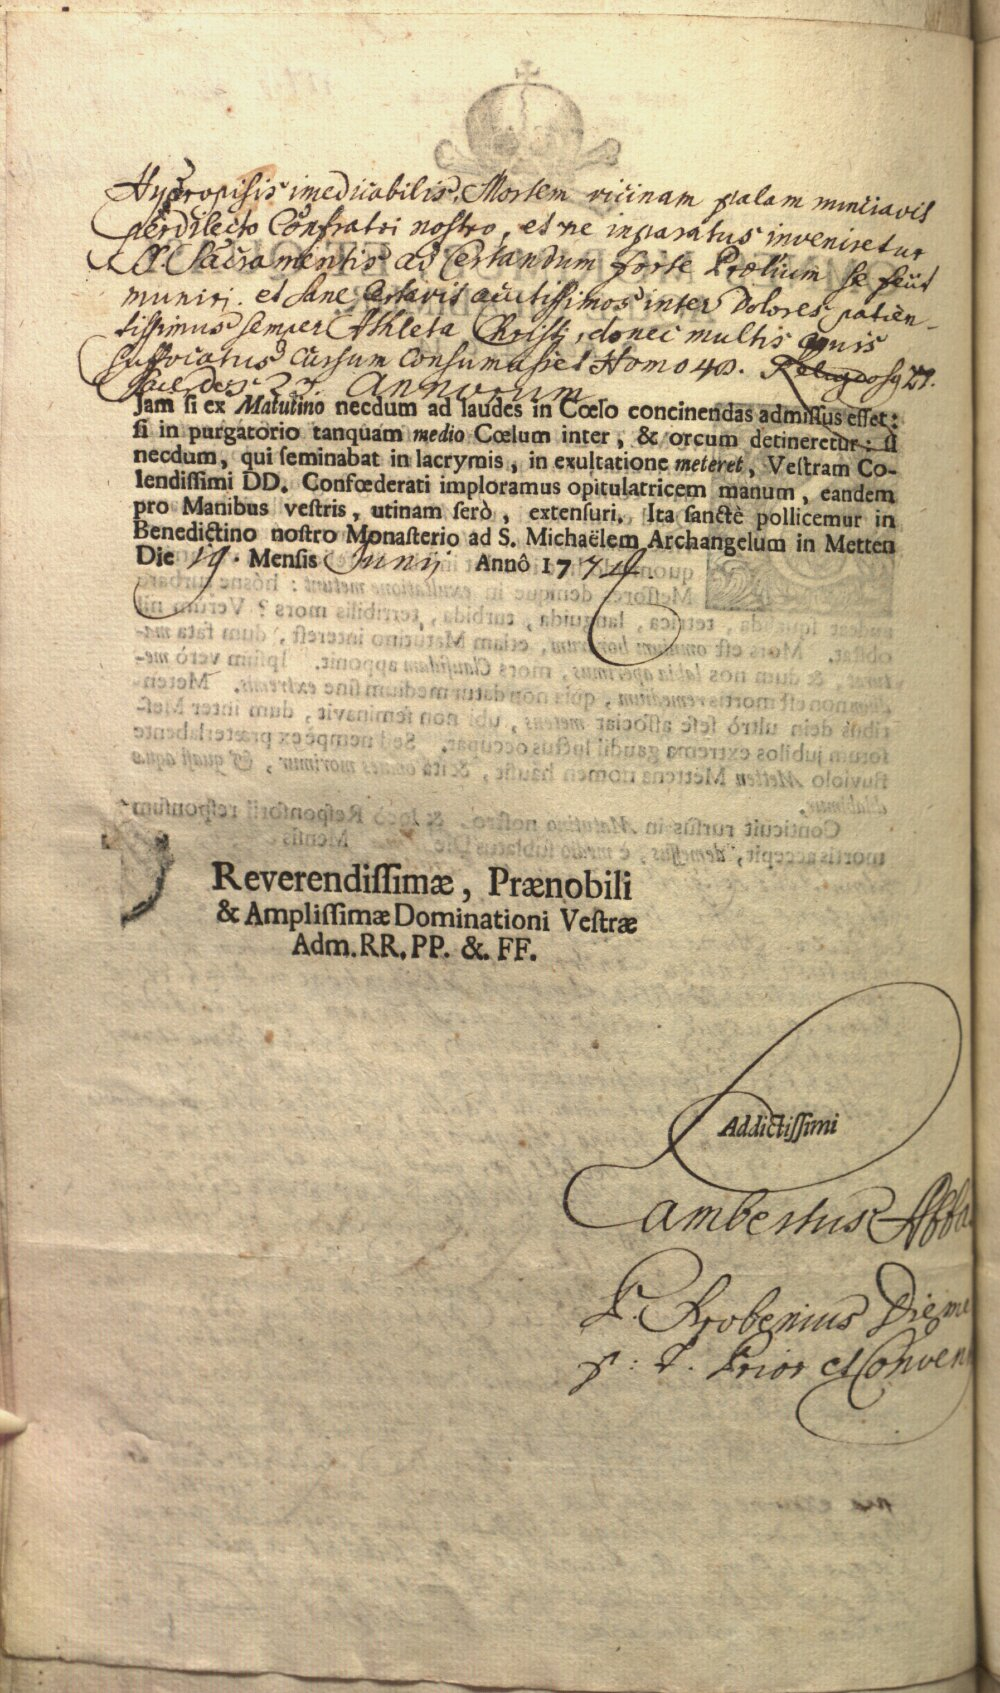 Hydropisis imedicabilis, Mortem vicinam palam nunciavit
perdilecto Confratri nostro, et ne inparatus inveniretur
SS. Sacramentis ad Certandum forte Prœlium se fecit
muniri. et sane Certavit acutissimos inter dolores patien-
tissimus semper Athleta Christi, donec multis aquis
Suffocatus cursum consumasset Homo 48. Religiosq 27.
Sacerdos 23. Annorum
Jam ſi ex Matutino necdum ad laudes in Cœlo concinendas admiſſus eſſet:
ſi in purgatorio tanquam medio Cœlum inter, & orcum detineretur: ſi
necdum, qui ſeminabat in lacrymis, in exultatione meteret, Veſtram Co-
lendiſſimi DD. Confœderati imploramus opitulatricem manum, eandem
pro Manibus veſtris, utinam ſerò, extenſuri. Ita ſanctè pollicemur in
Benedictino noſtro Monaſterio ad S. Michaëlem Archangelum in Metten
Die 19. Menſis Junii Annô 177
Reverendiſſimæ, Prænobili
& Ampliſſimæ Dominationi Veſtræ
Adm. RR. PP. &. FF.
Addictiſſimi
Lambertus Abba
P. Frobenius Dieme
p: t. Prior et Conven